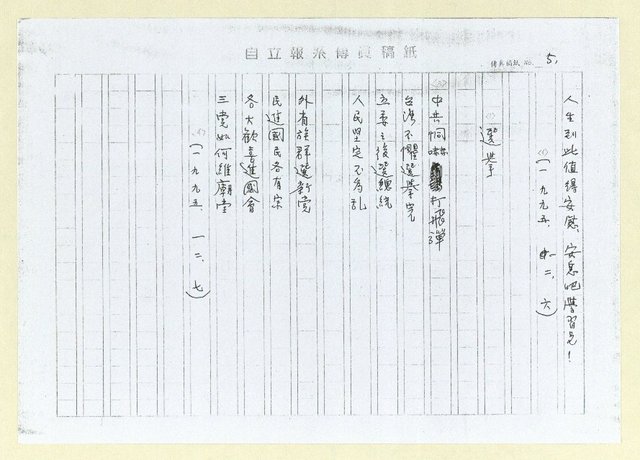 自立報系傳真稿紙
傳真稿紙 No. 5.
人生到此值得安慰、安息吧學習兄！
(一九九五、十二、六)
選舉
中共恫嚇打飛彈
台灣不懼選舉完
立委之後選總統
人民堅定不為乱
外省族群選新党
民進國民各有宗
各大歡喜進國會
三党如何維廟堂
(一九九五、一二、七)